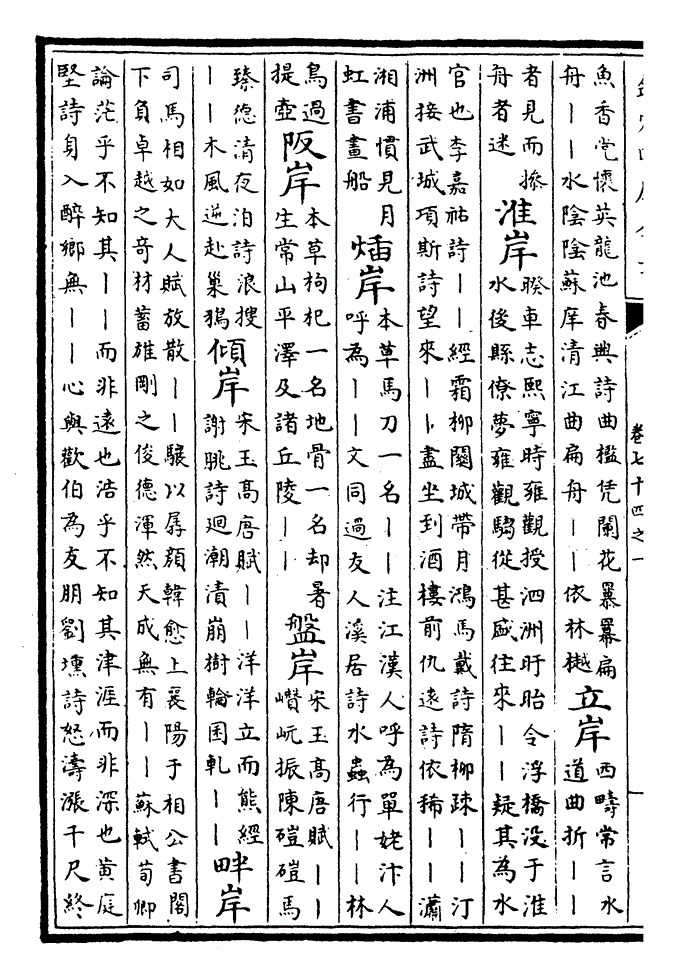 卷七十四之一
魚香党懷英龍池春興詩曲檻凭闌花羃羃扁
舟丨丨水陰陰蘇庠清江曲扁舟丨丨依林樾
立岸
西疇常言水
道曲折丨丨
者見而摻
舟者迷
淮岸
睽車志熙寧時雍觀授泗洲盱眙令浮橋没于淮
水後縣僚夢雍觀騶從甚盛往來丨丨疑其為水
官也李嘉祐詩丨丨經霜柳關城帶月鴻馬戴詩隋柳疎丨丨汀
洲接武城項斯詩望來丨丨盡坐到酒樓前仇遠詩依稀丨丨瀟
湘浦慣見月
虹書畫船
煏岸
本草馬刀一名丨丨注江漢人呼為單姥汴人
呼為丨丨文同過友人溪居詩水蟲行丨丨林
鳥過
提壺
阪岸
本草枸杞一名地骨一名却暑
生常山平澤及諸丘陵丨丨
盤岸
宋玉高唐賦丨丨
巑岏振陳磑磑馬
臻德清夜泊詩浪搜
丨丨木風逆赴巢鵶
傾岸
宋玉高唐賦丨丨洋洋立而熊經
謝朓詩迴潮漬崩樹輪囷軋丨丨
畔岸
司馬相如大人賦放散丨丨驤以孱顔韓愈上襄陽于相公書閣
下負卓越之奇材蓄雄剛之俊德渾然天成無有丨丨蘇軾荀卿
論茫乎不知其丨丨而非遠也浩乎不知其津涯而非深也黄庭
堅詩身入醉鄉無丨丨心與歡伯為友朋劉壎詩怒濤漲千尺終